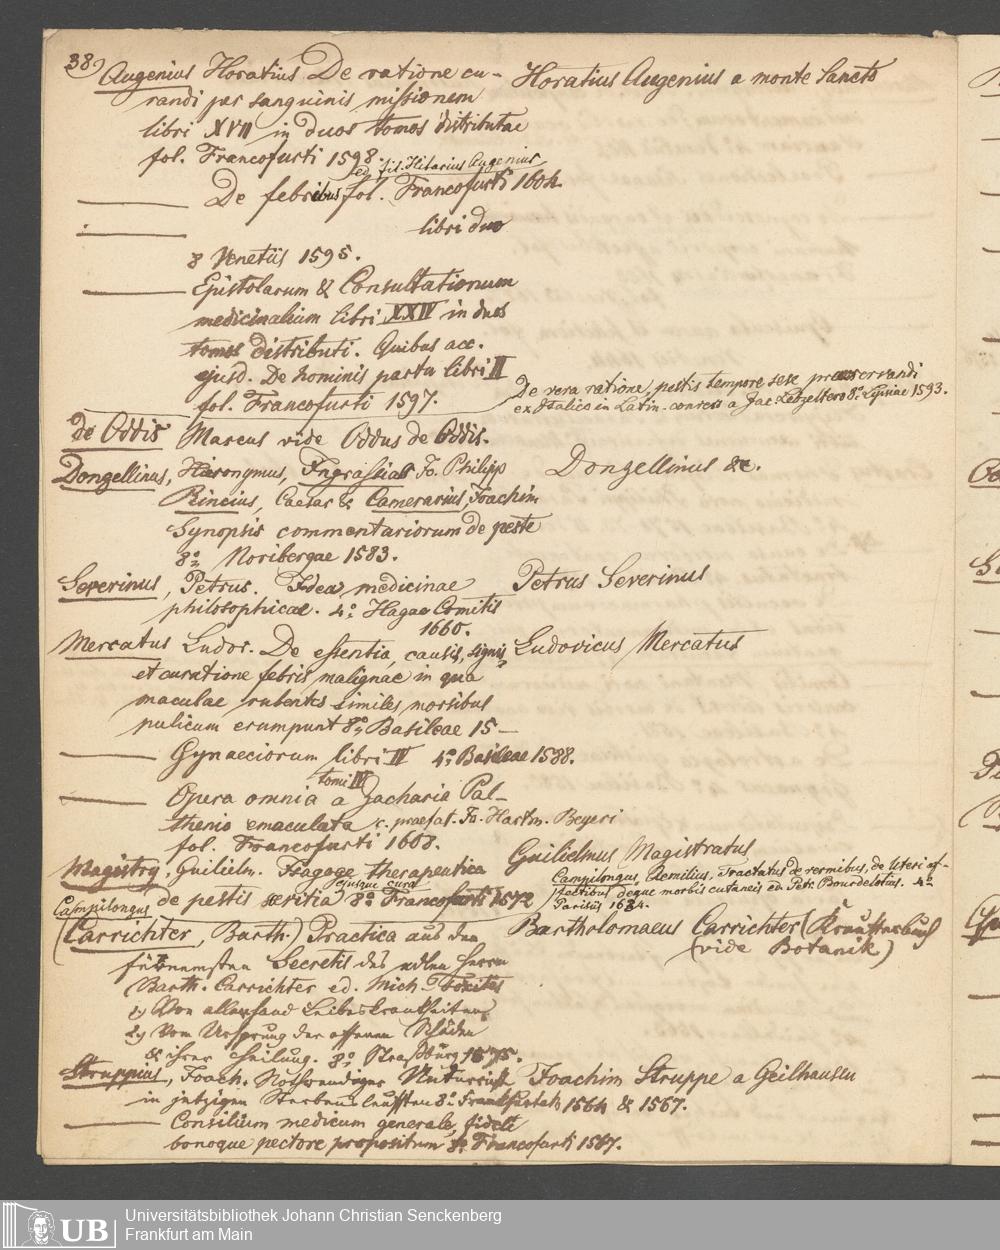 38,
Augenius Horatius De ratione cu-
randi per sanguinis missionem
libri XVII in duos tomos distributae
fol. Francofurti 1598.
Horatius Augenius a monte Sancto
ed. fil. Hilarius Augenius
De febribus fol. Francofurti 1604.
libri duo
8 Venetiis 1595.
Epistolarum & Consultationum
medicinalium libri XXIV in duos
tomos distributi. Quibus acc.
ejusd. De hominis partu libri II
fol. Francofurti 1597.
De vera ratione pestis tempore sese praeservandi
ex Italico in Latin. convers a Jac. Letzeltero 8o. Lipsiae 1593.
de Oddis Marcus vide Oddus de Oddis.
Donzellinus, Hieronymus, Ingrassias Jo. Philipp
Rincius, Caesar & Camerarius, Joachim
Synopsis commentariorum de peste
8o. Noribergae 1583.
Donzellinus &c.
Severinus, Petrus. Idea medicinae
philosophicae. 4o. Hagae Comitis
1660.
Petrus Severinus
Mercatus Ludov. De essentia, causis, signis
et curatione febris malignae in qua
maculae rubentes similes morsibus
pulicum erumpunt 8o. Basileae 15—
Ludovicus Mercatus
Gynaeciorum libri IV 4o. Basileae 1588.
tomi IV
Opera omnia a Zacharia Pal-
thenio emaculata c. praefat. Jo. Hartm. Beyeri
fol. Francofurti 1608.
Magistry, Guilielm. Isagoge therapeutica
ejusque cura
de pestis saevitia 8o. Francofurti 1572
Guilielmus Magistratus
Campilongus
Campilongus, Aemilius, Tractatus de vermibus, de Uteri af-
fectibus deque morbis cutaneis ed. Petr. Bourdelotius. 4o.
Parisiis 1634.
(Carrichter, Barth.) Practica aus den
fürnemsten Secretis des edlen Herrn
Barth. Carrichter ed. Mich. Toxites
1) Von allerhand Leibeskrankheiten
2) Vom Ursprung der offenen Schäden
& ihrer Heilung. 8o. Straßburg 1575.
Bartholomaeus Carrichter (Kräutterbuch
(vide Botanik)
Struppius, Joach. Nothwendiger Unterricht
in jetzigen Sterbensleufften 8o. Frankfurt 1564 & 1567.
Joachim Struppe a Geilhausen
Consilium medicum generale, fideli
bonoque pectore propositum 8o. Francofurti 1567.
UB
Universitätsbibliothek Johann Christian Senckenberg
Frankfurt am Main